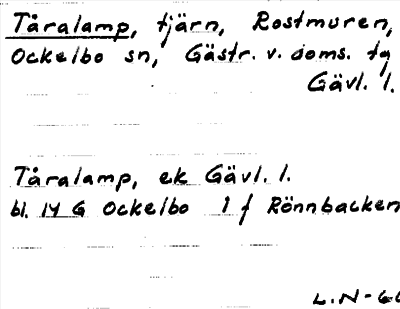 Tåralamp, tjärn, Rostmuren,
Ockelbo sn, Gästr. v. doms. tg
Gävl. l.
Tåralamp, ek Gävl. l.
bl. 14 G Ockelbo 1 f Rönnbacken
L.N-